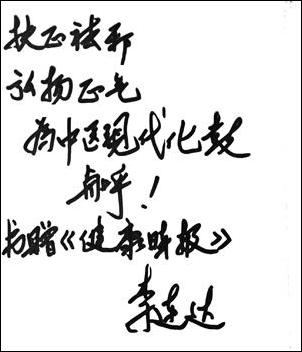 扶正祛邪
弘扬正气
为中医现代化鼓
与呼！
书赠《健康时报》
李连达